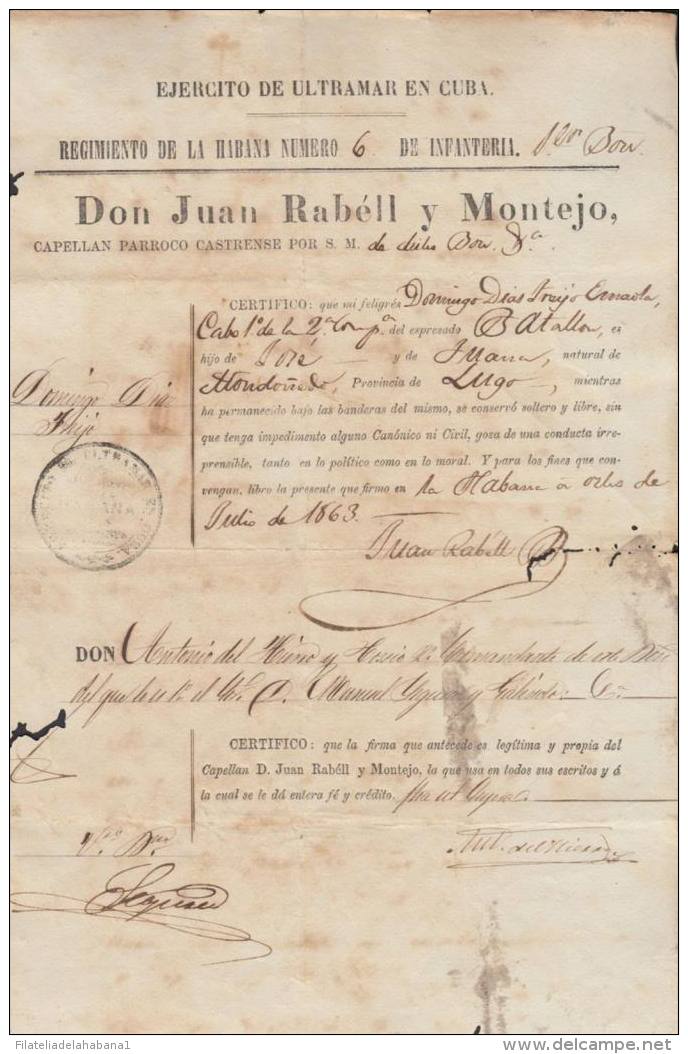 EJERCITO DE ULTRAMAR EN CUBA.
REGIMIENTO DE LA HABANA NUMERO 6 DE INFANTERIA. 1er Bon.
Don Juan Rabéll y Montejo,
CAPELLAN PARROCO CASTRENSE POR S. M. de dicho Bon.
CERTIFICO: que mi feligrés Domingo Dias Treijo
Cabo 1º de la 2ª Compª del espresado Batallon, es
hijo de José y de Juana, natural de
Mondoñedo, Provincia de Lugo, mientras
ha permanecido bajo las banderas del mismo, se conservó soltero y libre, sin
que tenga impedimento alguno Canónico ni Civil, goza de una conducta irre-
prensible, tanto en lo político como en lo moral. Y para los fines que con-
vengan, libro la presente que firmo en la Habana á ocho de
Julio de 1863.
Domingo Dias
Juan Rabéll
DON Antonio del y 2º Comandante de este Bon
del que es 1er D. Manuel y
CERTIFICO: que la firma que antecede es legítima y propia del
Capellan D. Juan Rabéll y Montejo, la que usa en todos sus escritos y á
la cual se le dá entera fé y crédito.
Ant. del
Filateliadelahabana1
delcampe.net